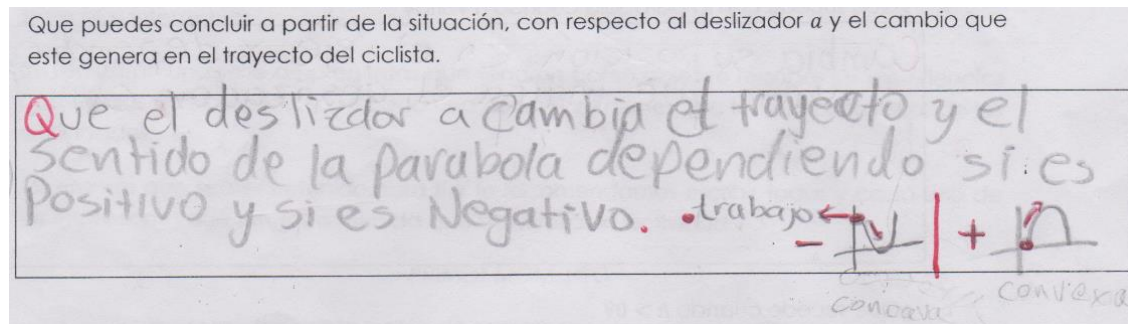 Que puedes concluir a partir de la situación, con respecto al deslizador a y el cambio que
este genera en el trayecto del ciclista.
Que el deslizdor a cambia el trayecto y el
sentido de la parabola dependiendo si es
Positivo y si es Negativo. •trabajo
- +
concava convexa